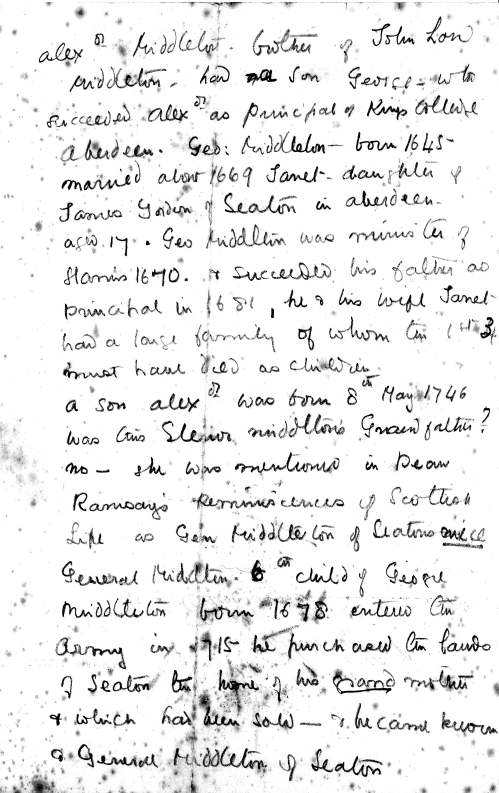 Alexdr Middleton. brother of John Lord
Middleton - had a son George - who
succeeded Alexdr as principal of Kings College
Aberdeen. Geo: Middleton - born 1645 -
married about 1669 Janet - daughter of
James Gordon of Seaton in aberdeen -
aged 17. Geo Middleton was minister of
Glamis 1670. & succeeded his father as
principal in 1684, he & his wife Janet
had a large family of whom the 1st 3
must have died as children
a son alexdr was born 8th May 1746
was this Elenor middletons Grandfather?
no - she was mentioned in Dean
Ramsay's Reminiscences of Scottish
Life as Gen Middleton of Seatons niece
General Middleton 6th child of George
Middleton born 1678 entered the
Army in 1715 he purchased the lands
of Seaton the home of his grand mother
& which had been sold - & became known
as General Middleton of Seaton